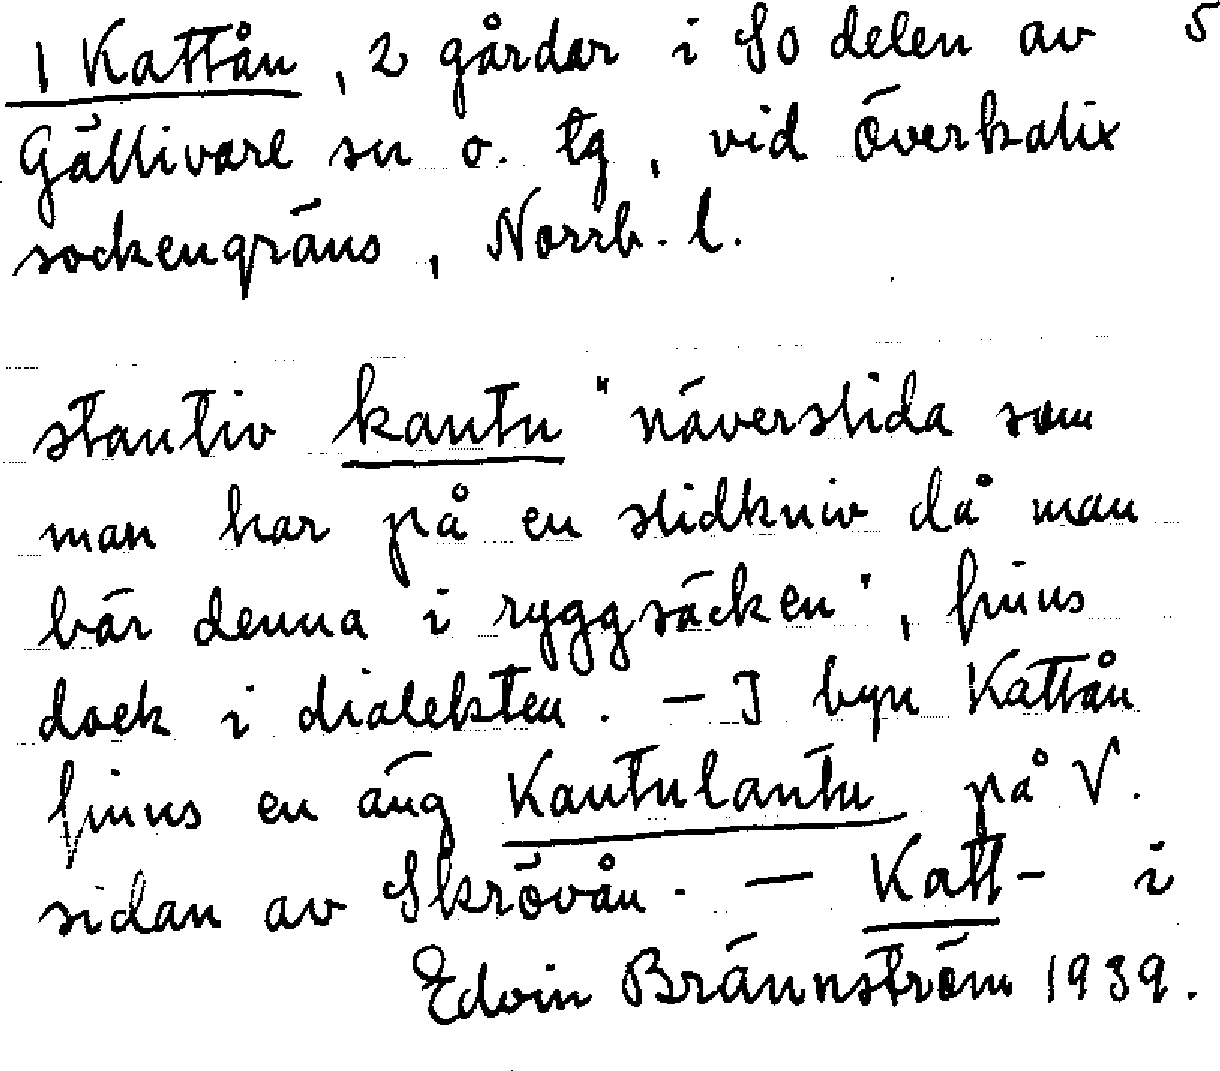 1 Kattån, 2 gårdar i SO delen av 5
Gällivare sn o. tg, vid Överkalix
sockengräns, Norrb. l.
stantiv kantu "näverslida som
man har på en slidkniv då man
bär denna i ryggsäcken", finns
dock i dialekten. – I byn Kattån
finns en äng Kantulantu på V.
sidan av Skrövån. – Katt- i
Edvin Brännström 1939.